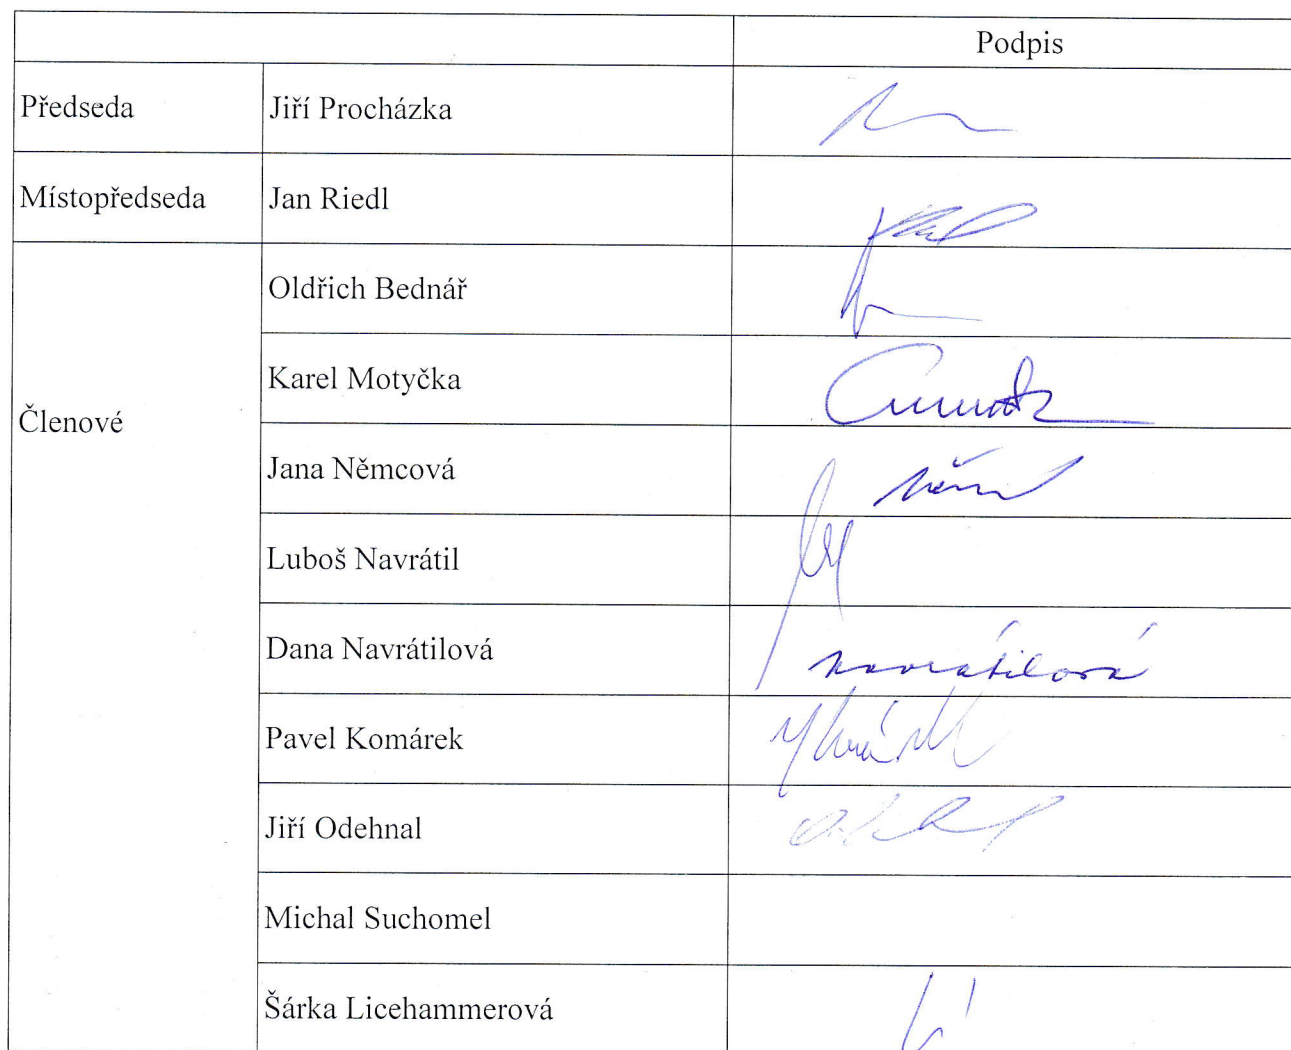 Podpis
Předseda Jiří Procházka
Místopředseda Jan Riedl
Oldřich Bednář
Karel Motyčka
Členové
Jana Němcová
Luboš Navrátil
Dana Navrátilová navrátilová
Pavel Komárek
Jiří Odehnal
Michal Suchomel
Šárka Licehammerová